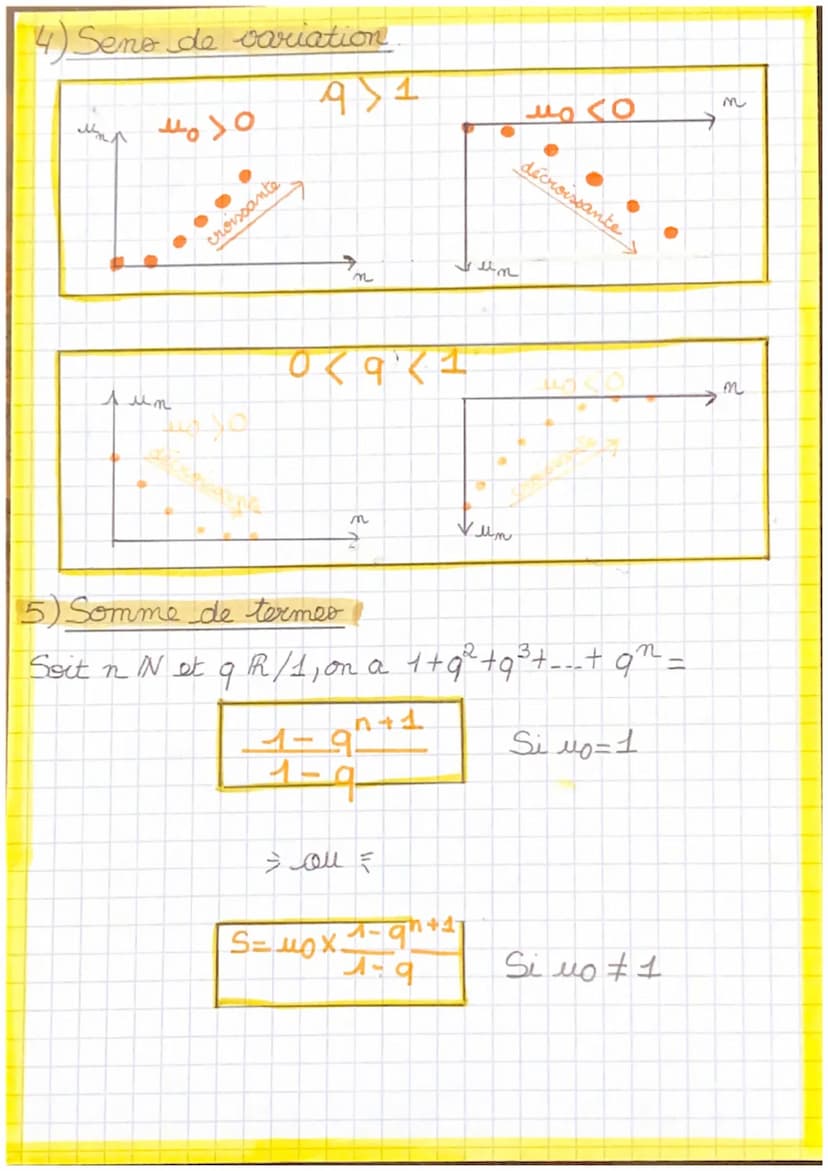 4) Sens de variation
q > 1
u₀ > 0
uₙ
croissante
n
u₀ < 0
n
décroissante
uₙ
0 < q < 1
uₙ
u₀ > 0
décroissante
n
u₀ < 0
n
uₙ
5) Somme de termes
Soit n ℕ et q ℝ/1, on a 1+q²+q³+...+ qⁿ =
1-qⁿ⁺¹
1-q
Si u₀=1
⇒ ou
S= u₀ × 1-qⁿ⁺¹
1-q
Si u₀ ≠ 1